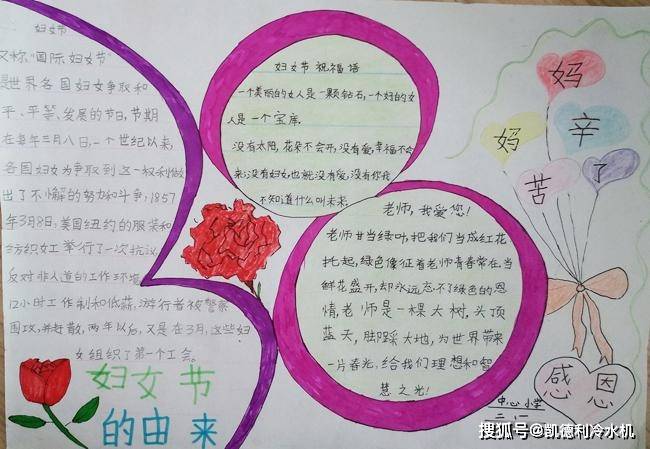 妇女节
又称"国际妇女节"
是世界各国妇女争取和
平、平等、发展的节日,节期
在每年三月八日,一个世纪以来,
各国妇女为争取到这一权利做
出了不懈的努力和斗争,1857
年3月8日,美国纽约的服装和
纺织女工举行了一次抗议,
反对非人道的工作环境,
12小时工作制和低薪,游行者被警察
围攻,并赶散,两年以后,又是在3月,这些妇
女组织了第一个工会。
妇女节
的由来
妇女节祝福语
一个美丽的女人是一颗钻石,一个好的女
人是一个宝库.
没有太阳,花朵不会开,没有爱,幸福不会
来,没有妇女,也就没有爱,没有你我
不知道什么叫未来.
老师,我爱您!
老师甘当绿叶,把我们当成红花
托起,绿色像征着老师青春常在,当
鲜花盛开,却永远忘不了绿色的恩
情,老师是一棵大树,头顶
蓝天,脚踩大地,为世界带来
一片春光,给我们理想和智
慧之光!
妈
妈
辛
苦
了
感恩
中心小学
二.1
搜狐号@凯德利冷水机